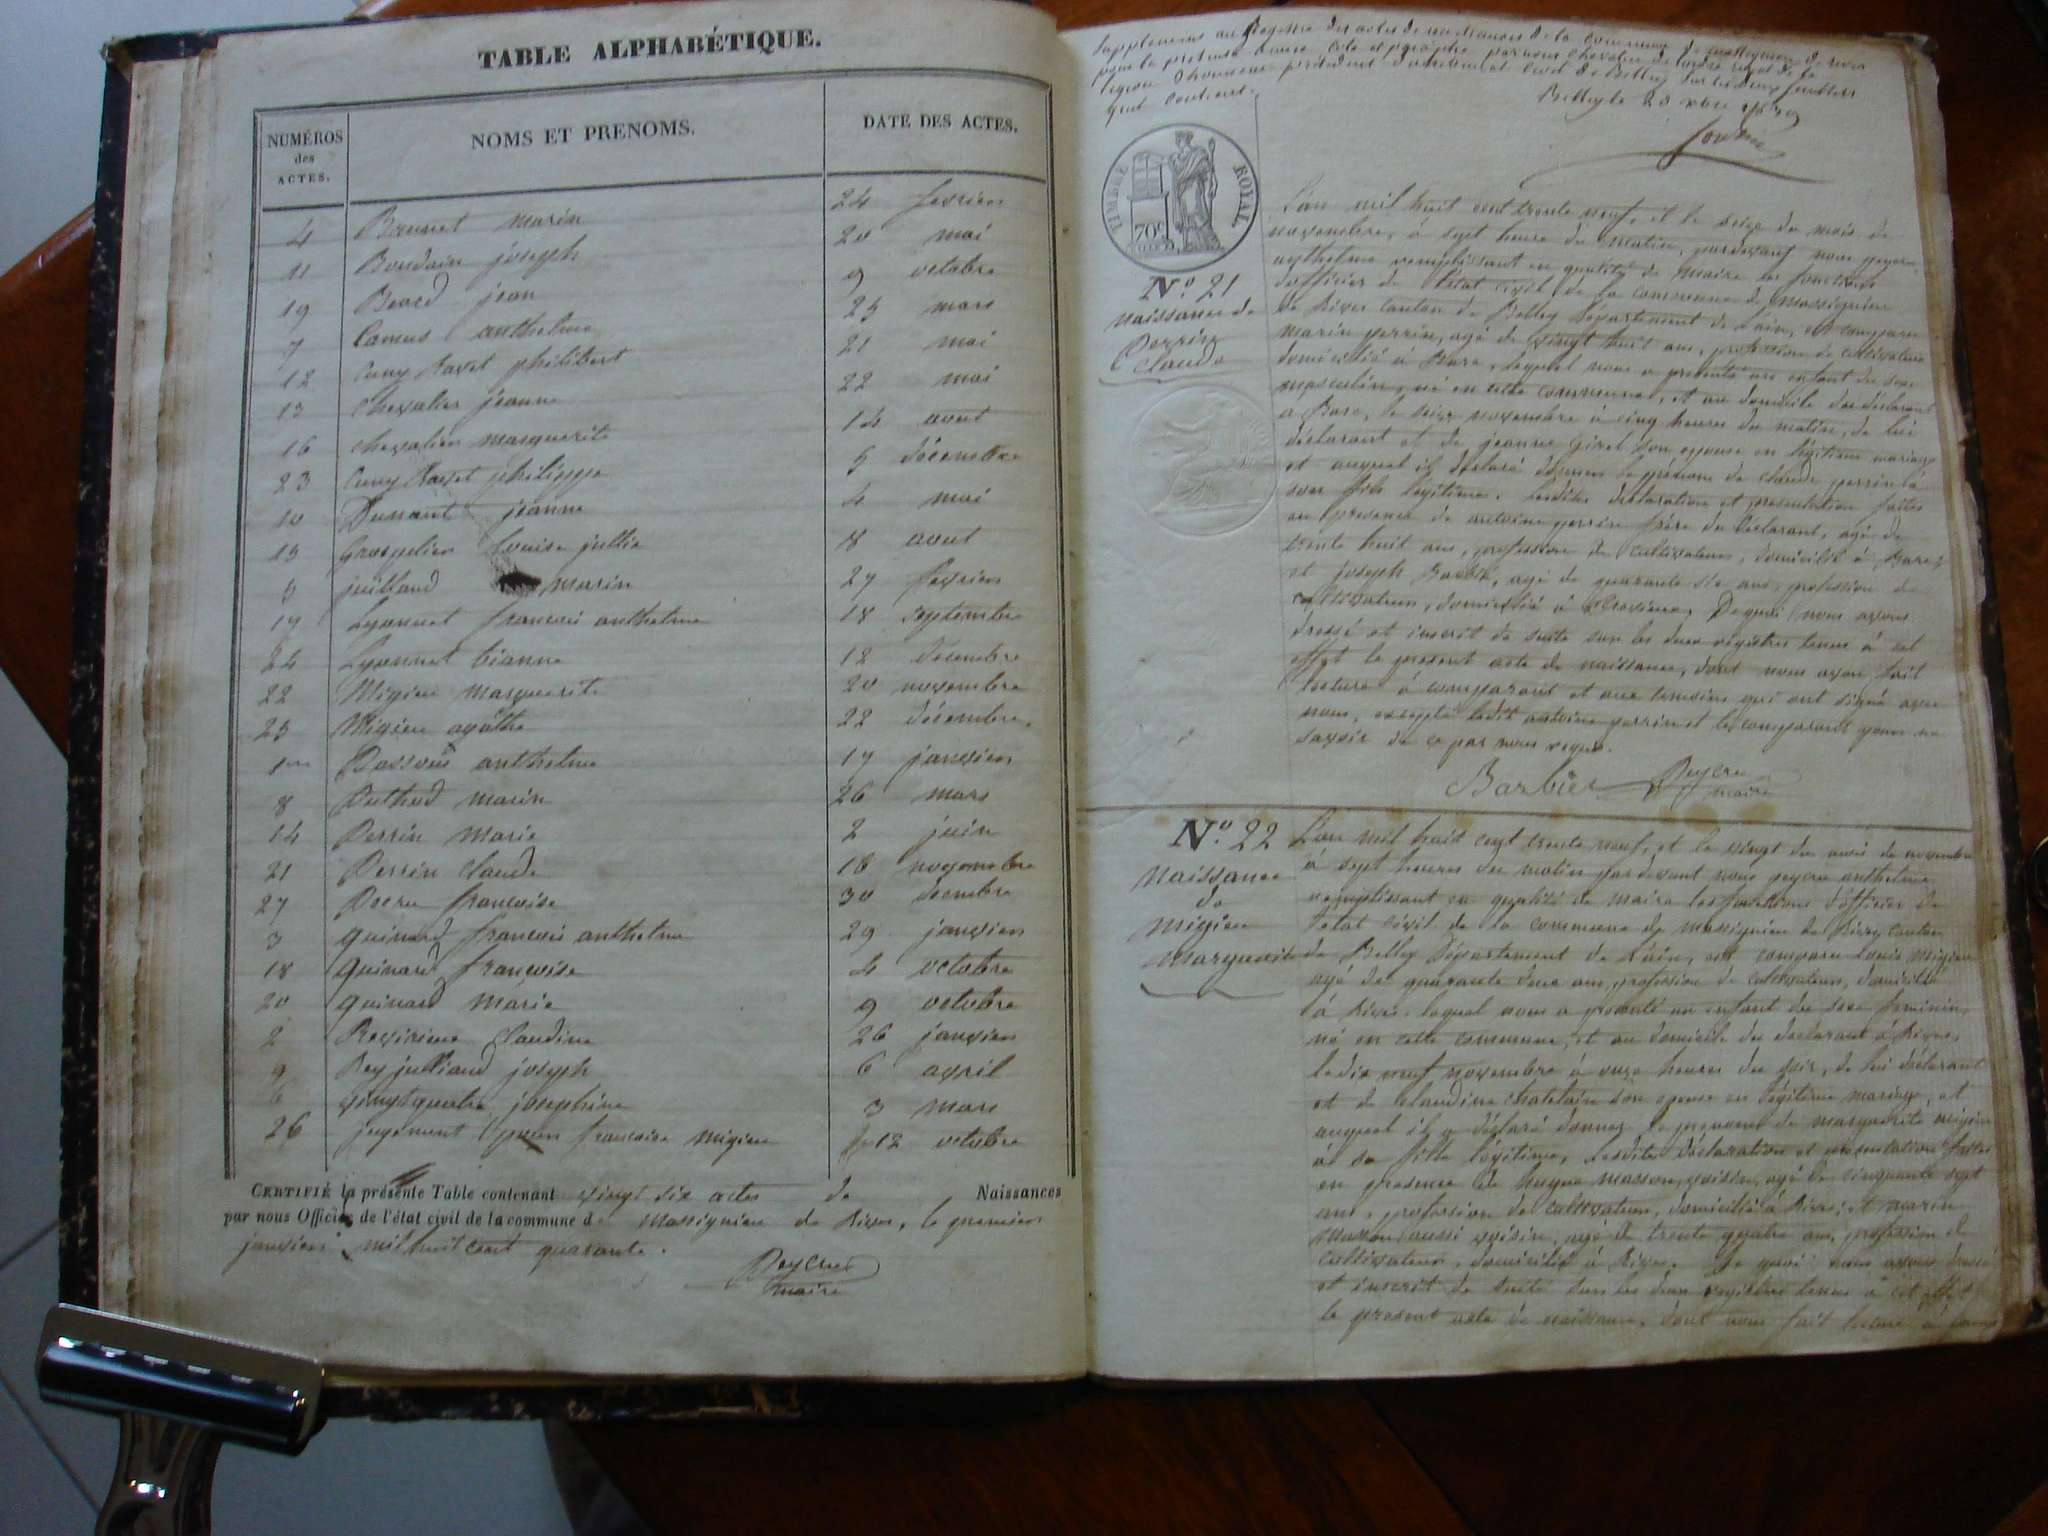 TABLE ALPHABÉTIQUE.
NUMÉROS des ACTES. NOMS ET PRENOMS. DATE DES ACTES.
4 Brunet marin 24 fevrier
11 Boudain joseph 20 mai
19 Beard jean 9 octobre
7 Camus anthelme 25 mars
12 Cuny Ravet philibert 21 mai
13 chevalier jeanne 22 mai
16 chevalier marguerite 14 aout
23 Cuny Ravet philippe 5 décembre
10 Dunant jeanne 4 mai
15 Grospelier Louise jullie 8 aout
5 juilland marin 27 fevrier
17 Lyonnet francois anthelme 18 septembre
24 Lyonnet 12 décembre
22 Migieu marguerite 20 novembre
25 Migieu agathe 22 décembre
1er anthelme 17 janvier
8 Puthod marin 26 mars
14 Perrin marie 2 juin
21 Perrin claude 18 novembre
27 francoise 30 decembre
3 guinard francois anthelme 29 janvier
18 guinard françoise 4 octobre
20 guinard marie 9 octobre
2 claudine 26 janvier
9 Rey julliand joseph 6 avril
6 vingtquatre josephine 3 mars
26 jugement francoise migieu 12 octobre
CERTIFIÉ la présente Table contenant vingt six actes de Naissances
par nous Officier de l'état civil de la commune de Massignieu de Rives, le premier
janvier mil huit cent quarante.
Peycru
maire
Supplement au Registre des actes de naissances de la commune de massignieu de rives
pour la presente année Cote et paraphé par nous chevalier de l'ordre royal de la
légion d'honneur président du tribunal civil de Belley sur les deux feuillets
qu'il contient.
Belley le 20 xbre 1839
TIMBRE ROYAL
70c
No. 21
naissance de
Perrin
Claude
L'an mil huit cent trente neuf, et le seize du mois de
novembre, à sept heure du matin, pardevant nous peycru
anthelme remplissant en qualité de maire les fonctions
d'officier de l'état civil de la commune de Massignieu
de Rives canton de Belley département de l'ain, est comparu
marin perrin, agé de vingt huit ans, profession de cultivateur
domicilié à Bare, lequel nous a presenté un enfant du sexe
masculin, né en cette commune, et au domicile du déclarant
a Bare, le seize novembre à cinq heures du matin, de lui
déclarant et de jeanne Girel son epouse en légitime mariage
et auquel il declaré donner le prénom de claude perrin à
son fils légitime. Lesdites declaration et presentation faites
en presence de antoine perrin frère du déclarant, agé de
trente huit ans, profession de cultivateur, domicilié à Bare,
et joseph Barbier, agé de quarante six ans, profession de
cultivateur, domicilié à. De quoi nous avons
dressé et inscrit de suite sur les deux registres tenus à cet
effet le present acte de naissance, dont nous avons fait
lecture à comparant et aux temoins qui ont signé avec
nous, excepté ledit antoine perrin et le comparant pour ne
savoir de ce par nous requis.
Barbier Peycru
maire
No. 22
Naissance
de
migieu
marguerite
L'an mil huit cent trente neuf, et le vingt du mois de novembre
à sept heures du matin pardevant nous peycru anthelme
remplissant en qualité de maire les fonctions d'officier de
l'etat civil de la commune de massignieu de Rives canton
de Belley département de l'ain, est comparu Louis migieu
agé de quarante deux ans, profession de cultivateur, domicilié
à Rives, lequel nous a presenté un enfant du sexe feminin,
né en cette commune, et au domicile du declarant à Rives,
le dix neuf novembre à onze heures du soir, de lui déclarant
et de claudine chatelain son epouse en légitime mariage, et
auquel il a déclaré donner le prenom de marguerite migieu
à sa fille légitime, Lesdites déclaration et presentation faites
en presence de masson, voisin, agé de cinquante sept
ans, profession de cultivateur, domicilié à Rives, et marin
masson aussi voisin, agé de trente quatre ans, profession de
cultivateur, domicilié à Rives. De quoi nous avons dressé
et inscrit de suite sur les deux registres tenus à cet effet
le present acte de naissance, dont nous fait lecture